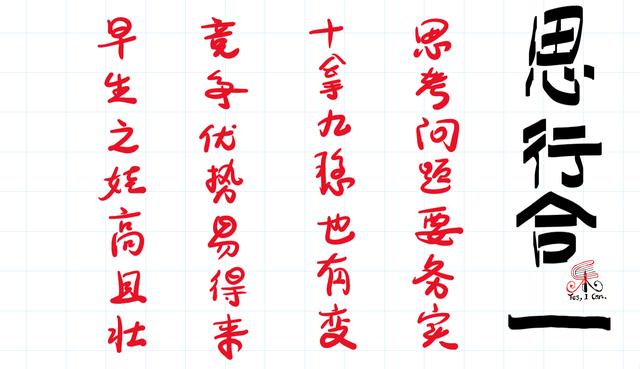 思行合一
Yes, I Can.
思考问题要务实
十拿九稳也有变
竞争优势易得来
早生之娃高且壮